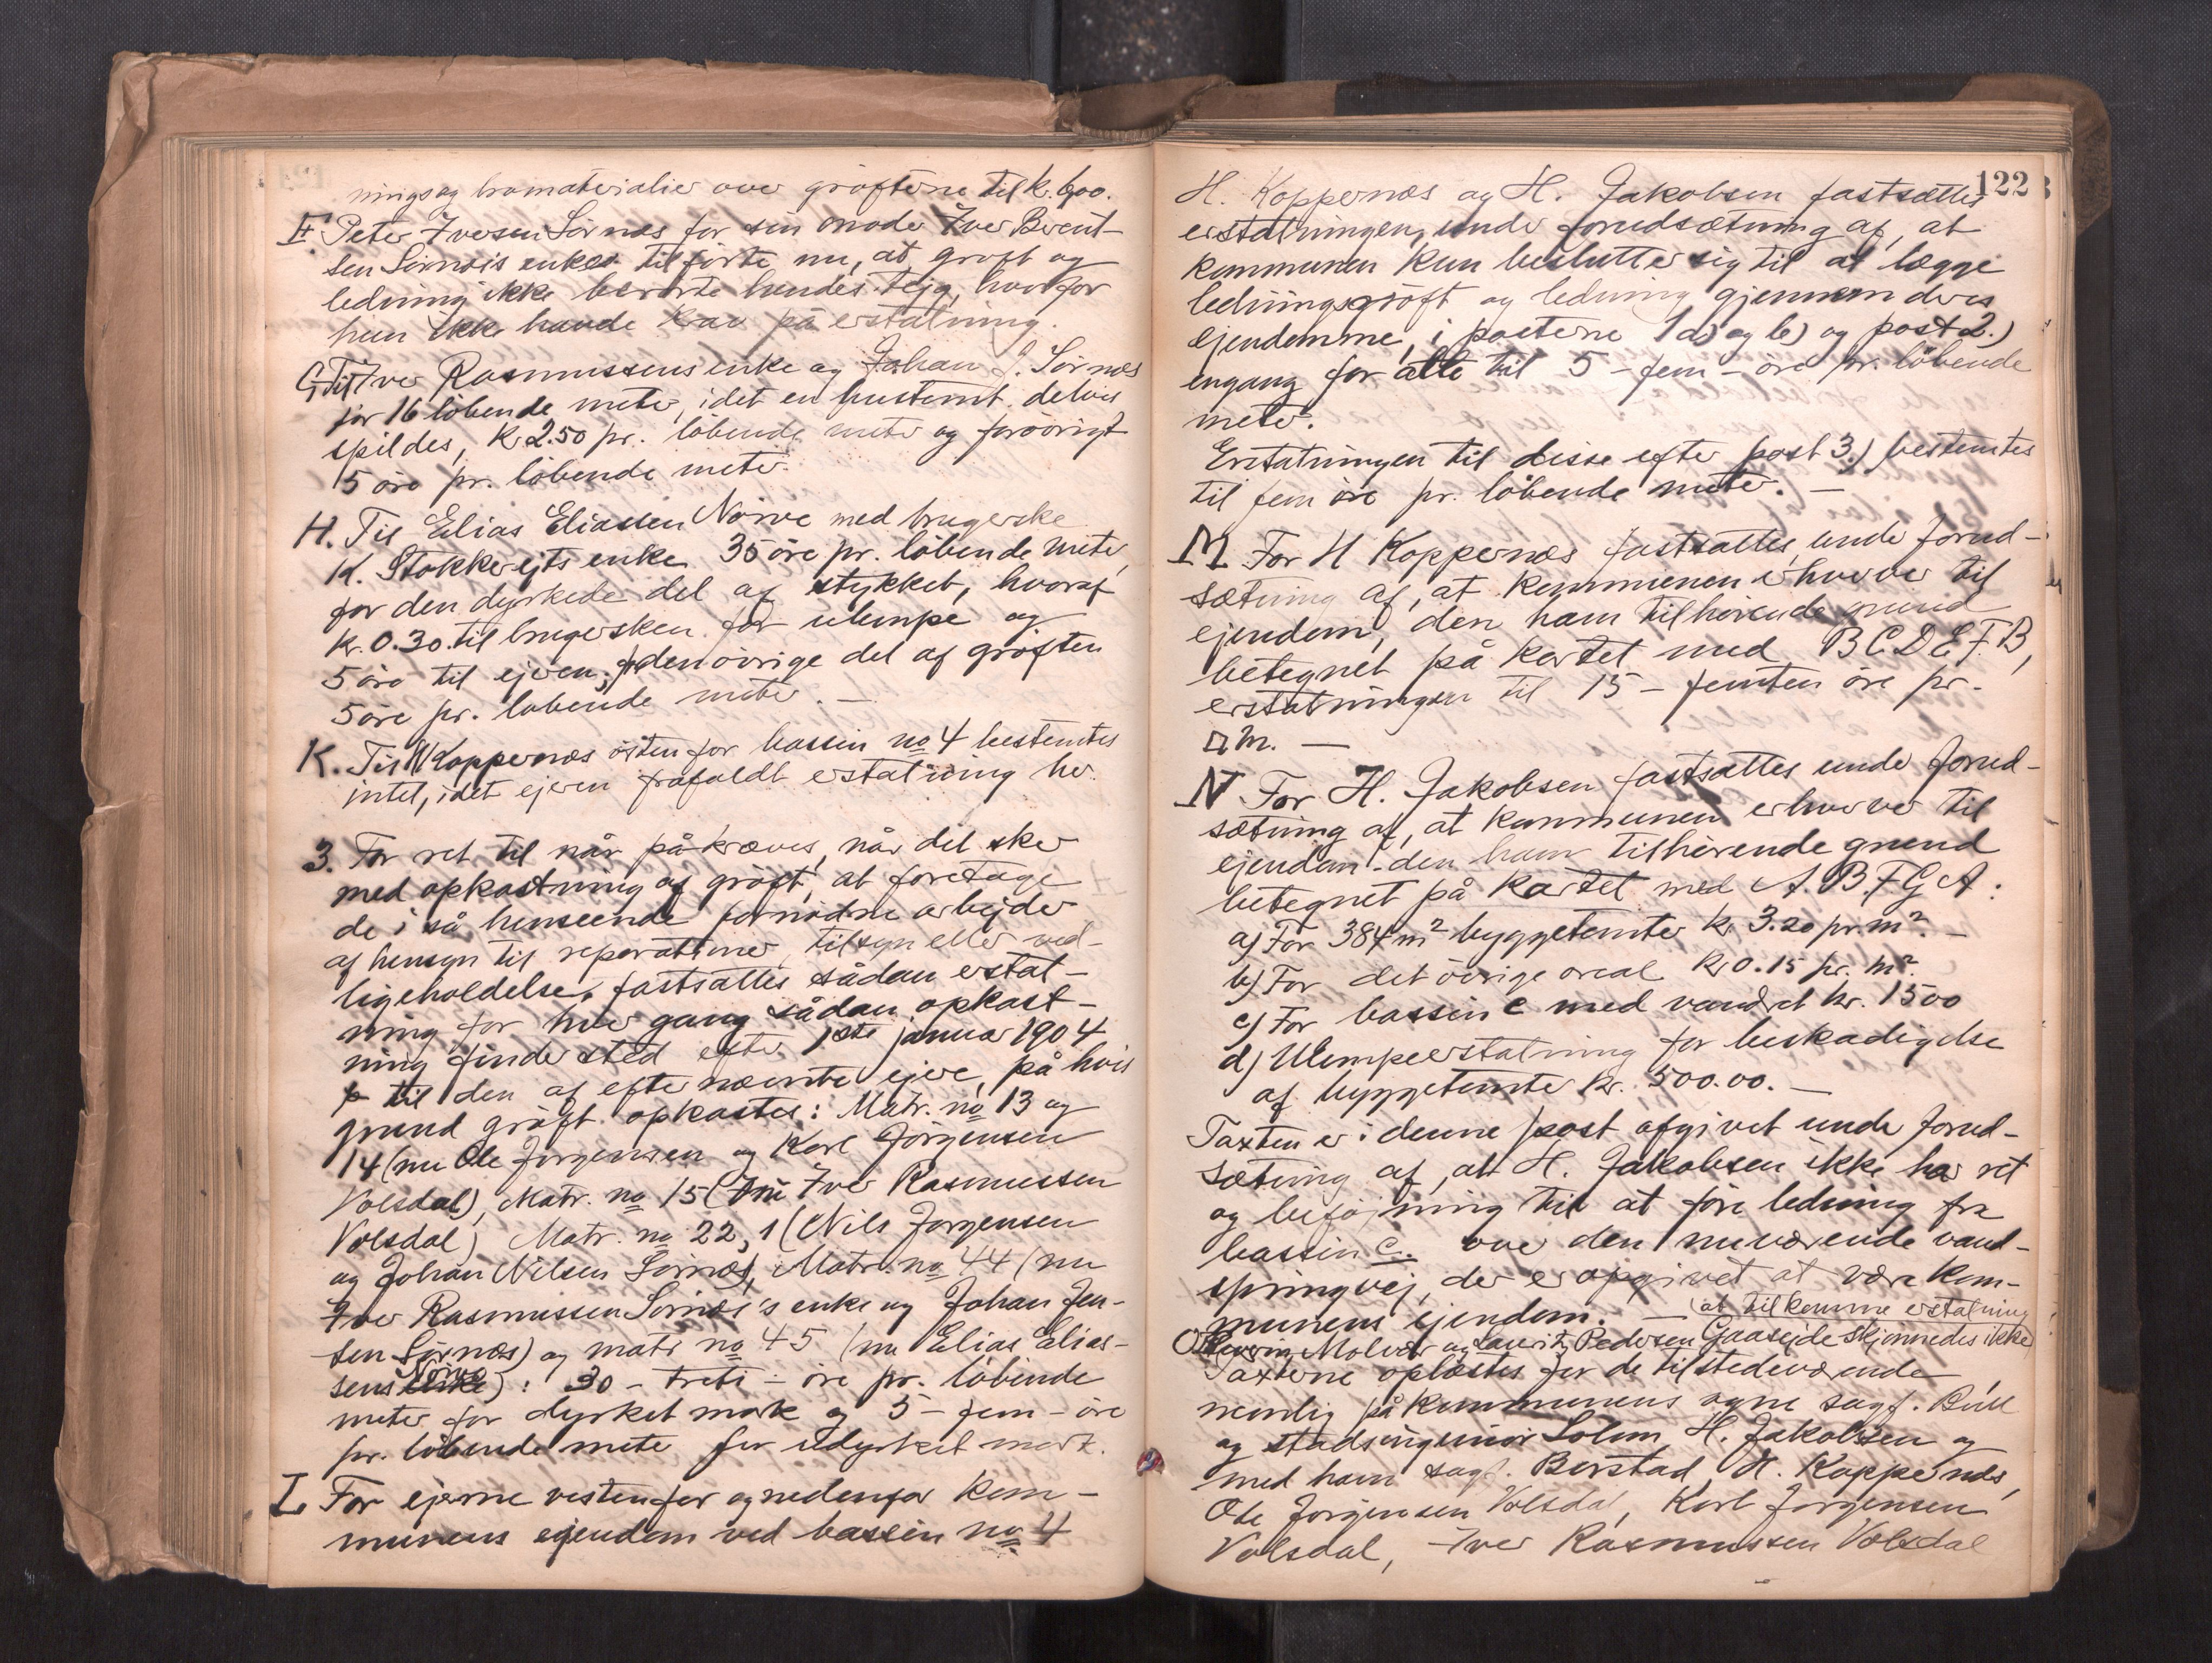 nings og bromaterialier over gröfterne til kr. 600.
F. Peter Iversen Sörnæs for sin moder Iver Berent-
sen Sörnæs's enke tilförte nu, at gröft og
ledning ikke berörte hendes tejg, hvorfor
hun ikke havde krav på erstatning.
G. Til Iver Rasmussens enke og Johan J. Sörnæs
for 16 löbende meter, idet en hustomt delvis
spildes, kr 2.50 pr. löbende meter og forövrigt
5 öre pr. löbende meter.
H. Til Elias Eliassen Nörve med brugerske
K. Stokkerejts enke 35 öre pr. löbende meter,
for den dyrkede del af stykket, hvoraf
kr. 0.30 til brugersken for ulempe og
5 öre til ejeren; for den övrige del af gröften
5 öre pr. löbende meter. —
K. Til H Koppernæs östenfor bassin no 4 bestemtes
intet, idet ejeren frafaldt erstatning her.
3. For ret til når påkræves, når det sker
med opkastning af gröft, at foretage
de i så henseende fornödne arbejder
af hensyn til reparationer, tilsyn eller ved-
ligeholdelse, fastsattes sådan erstat-
ning for hver gang sådan opkast-
ning finder sted efter 1ste januar 1904
til den af efternævnte ejere, på hvis
grund gröft opkastes: Matr. no 13 og
14 (nu Ole Jorgensen og Karl Jörgensen
Volsdal), Matr. no 15 (nu Iver Rasmussen
Volsdal) Matr. no 22,1 (Nils Jorgensen
og Johan Nilsen Sörnæs), Matr. no 44 (nu
Iver Rasmussen Sörnæs's enke og Johan Jen-
sen Sörnæs) og matr no 45 (nu Elias Elias-
sens Nörve): 30 – treti – öre pr. löbende
meter for dyrket mark og 5 – fem – öre
pr. löbende meter for udyrket mark.
L For ejerne vestenfor og nedenfor kom-
munens ejendom ved bassin no 4
122
H. Koppernæs og H. Jakobsen fastsættes
erstatningen, under forudsætning af, at
kommunen kun beslutter sig til at lægge
ledningsgröft og ledning gjennem deres
ejendomme, i posterne 1 a) og b) og post 2.)
engang for alle til 5 – fem – öre pr. löbende
meter.
Erstatningen til disse efter post 3.) bestemtes
til fem öre pr. löbende meter. —
M For H Koppernæs fastsattes, under forud-
sætning af, at kommunen erhverver til
ejendom, den ham tilhörende grund
betegnet på kartet med B C D E F B,
erstatningen til 15 – femten öre pr.
□ m. —
N For H. Jakobsen fastsattes under forud-
sætning af, at kommunen erhverver til
ejendom den ham tilhörende grund
betegnet på kartet med A. B F G A:
a) For 384 m² byggetomter kr 3.20 pr. m². —
b) For det övrige areal kr 0.15 pr. m².
c) For bassin C med vandret kr. 1500
d) Ulempeerstatning for beskadigelse
af byggetomter kr. 500.00. —
Taxten er i denne post afgivet under forud-
sætning af, at H. Jakobsen ikke har ret
og beföjning til at före ledning fra
bassin C. over den nuværende vand-
springvej, der er opgivet at være kom-
munens ejendom. —
O Severin Molvær og Laurits Pedersen Gaasejde skjönnedes ikke
at tilkomme erstatning
Taxterne oplæstes for de tilstedeværende
nemlig på kommunens vegne sagf. Bull
og stadsingeniör Solem, H. Jakobsen og
med ham sagf. Berstad, H. Koppernæs,
Ole Jorgensen Volsdal, Karl Jorgensen
Volsdal, Iver Rasmussen Volsdal